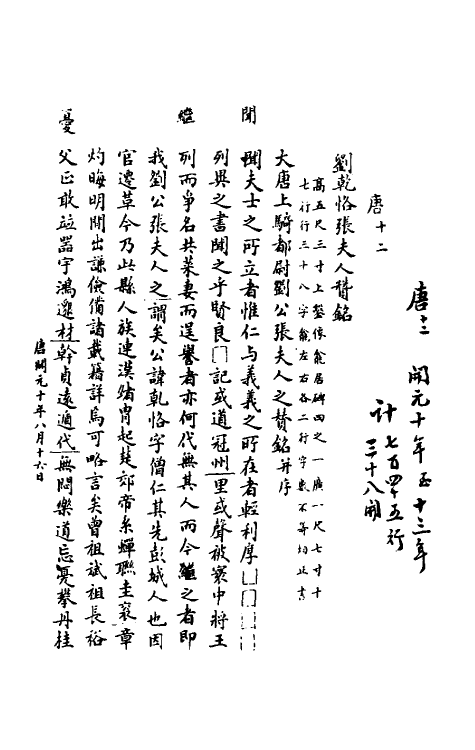 唐十二　開元十年至十三年
計七百四十五行
三十八開
唐十二
劉乾恪張夫人讚銘
高五尺三寸上鑿像龕居碑四之一廣一尺七寸十
七行行三十八字龕左右各二行字數不等均正書
大唐上騎都尉劉公張夫人之贊銘并序
聞夫士之所立者惟仁与義義之所在者輕利厚□□□□
列異之書聞之乎賢良□記或道冠州里或聲被寰中將王
列而爭名共萊妻而逞譽者亦何代無其人而今繼之者即
我劉公張夫人之謂矣公諱乾恪字僧仁其先彭城人也因
官遷革今乃此縣人族連漢緒胄起楚郊帝系蟬聯圭袞章
灼晦明間出謙儉備諸載籍詳焉可略言矣曾祖斌祖長裕
父正敢並器宇鴻邈材幹貞遠遁代無悶樂道忘憂攀丹桂
唐開元十年八月十六日
聞
繼
憂